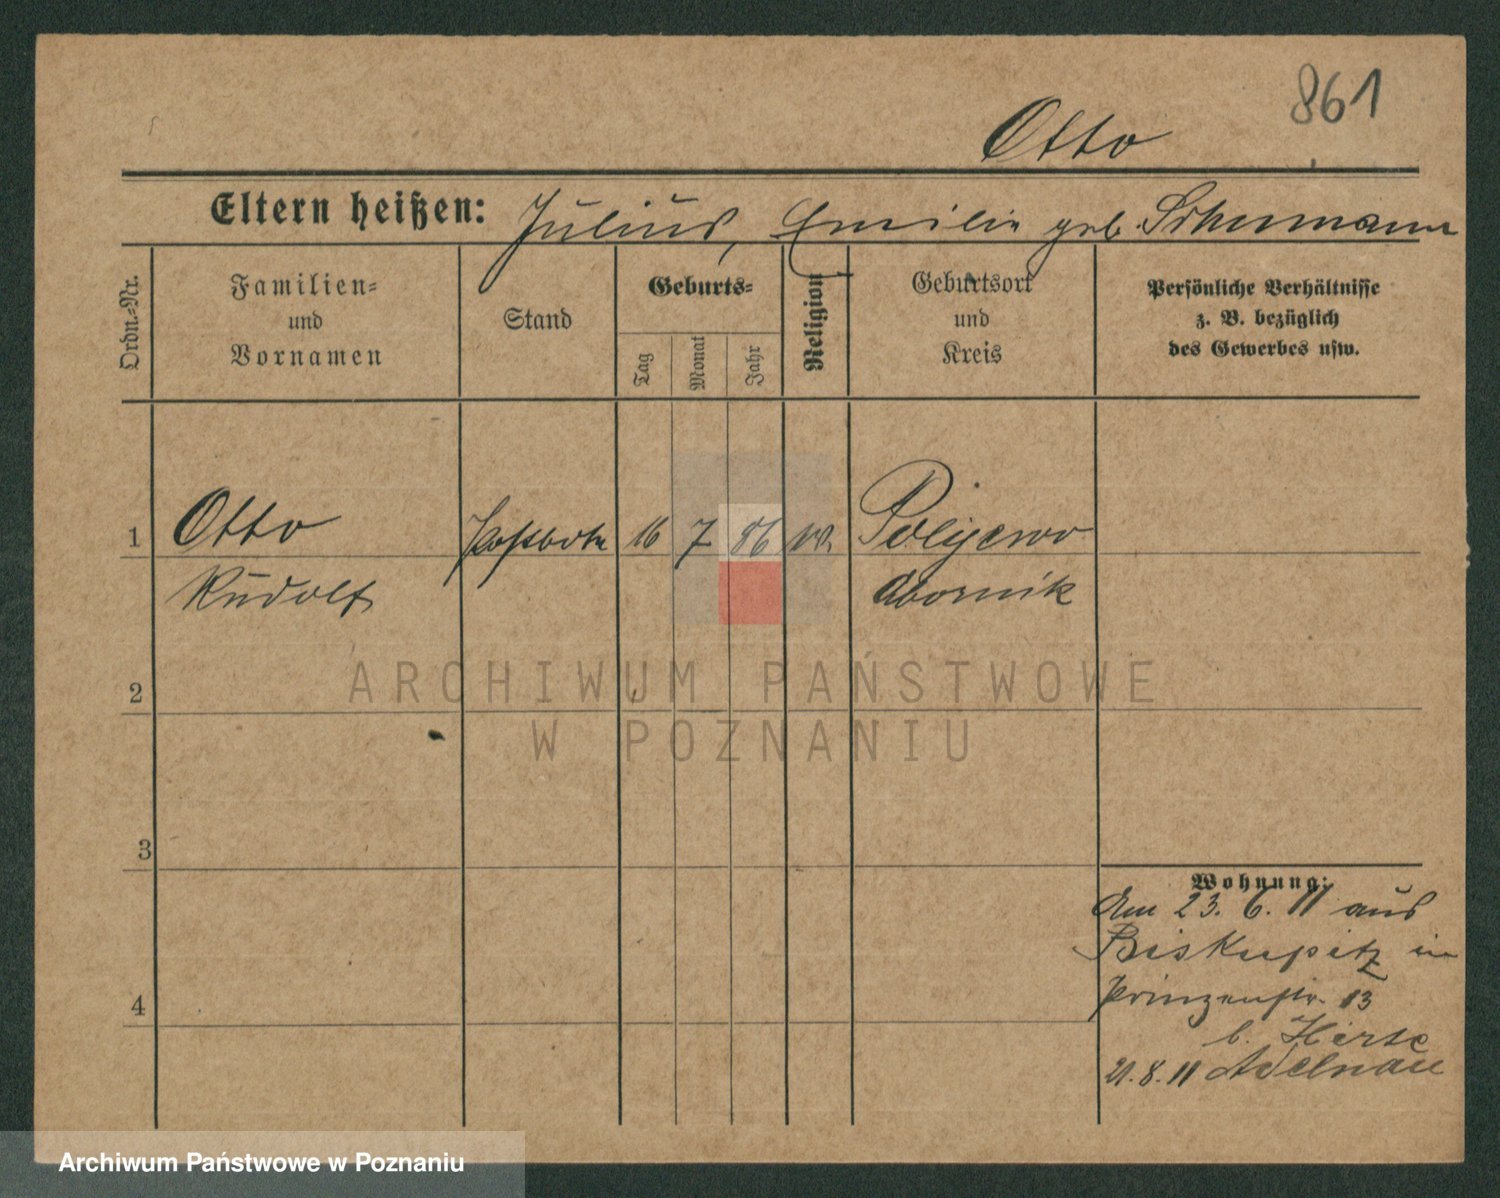 861
Otto
Eltern heißen: Julius, Emilie geb. Schumann
Ordn.-Nr.
Familien-
und
Vornamen
Stand
Geburts-
Tag
Monat
Jahr
Religion
Geburtsort
und
Kreis
Persönliche Verhältnisse
z. B. bezüglich
des Gewerbes usw.
1 Otto Postbote 16 7 86 Polijewo
Rudolf Obornik
2
3
4
Wohnung:
Am 23. 6. 11 aus
Biskupitz in
Prinzenstr. 13
b. Hirse
21. 8. 11 Adelnau
ARCHIWUM PAŃSTWOWE
W POZNANIU
Archiwum Państwowe w Poznaniu